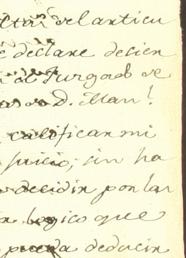 del articu
declare decien
el Juzgado de
d. Man!
calificar mi
juicio, sin ha
decidir por las
logico que
pueda deducir